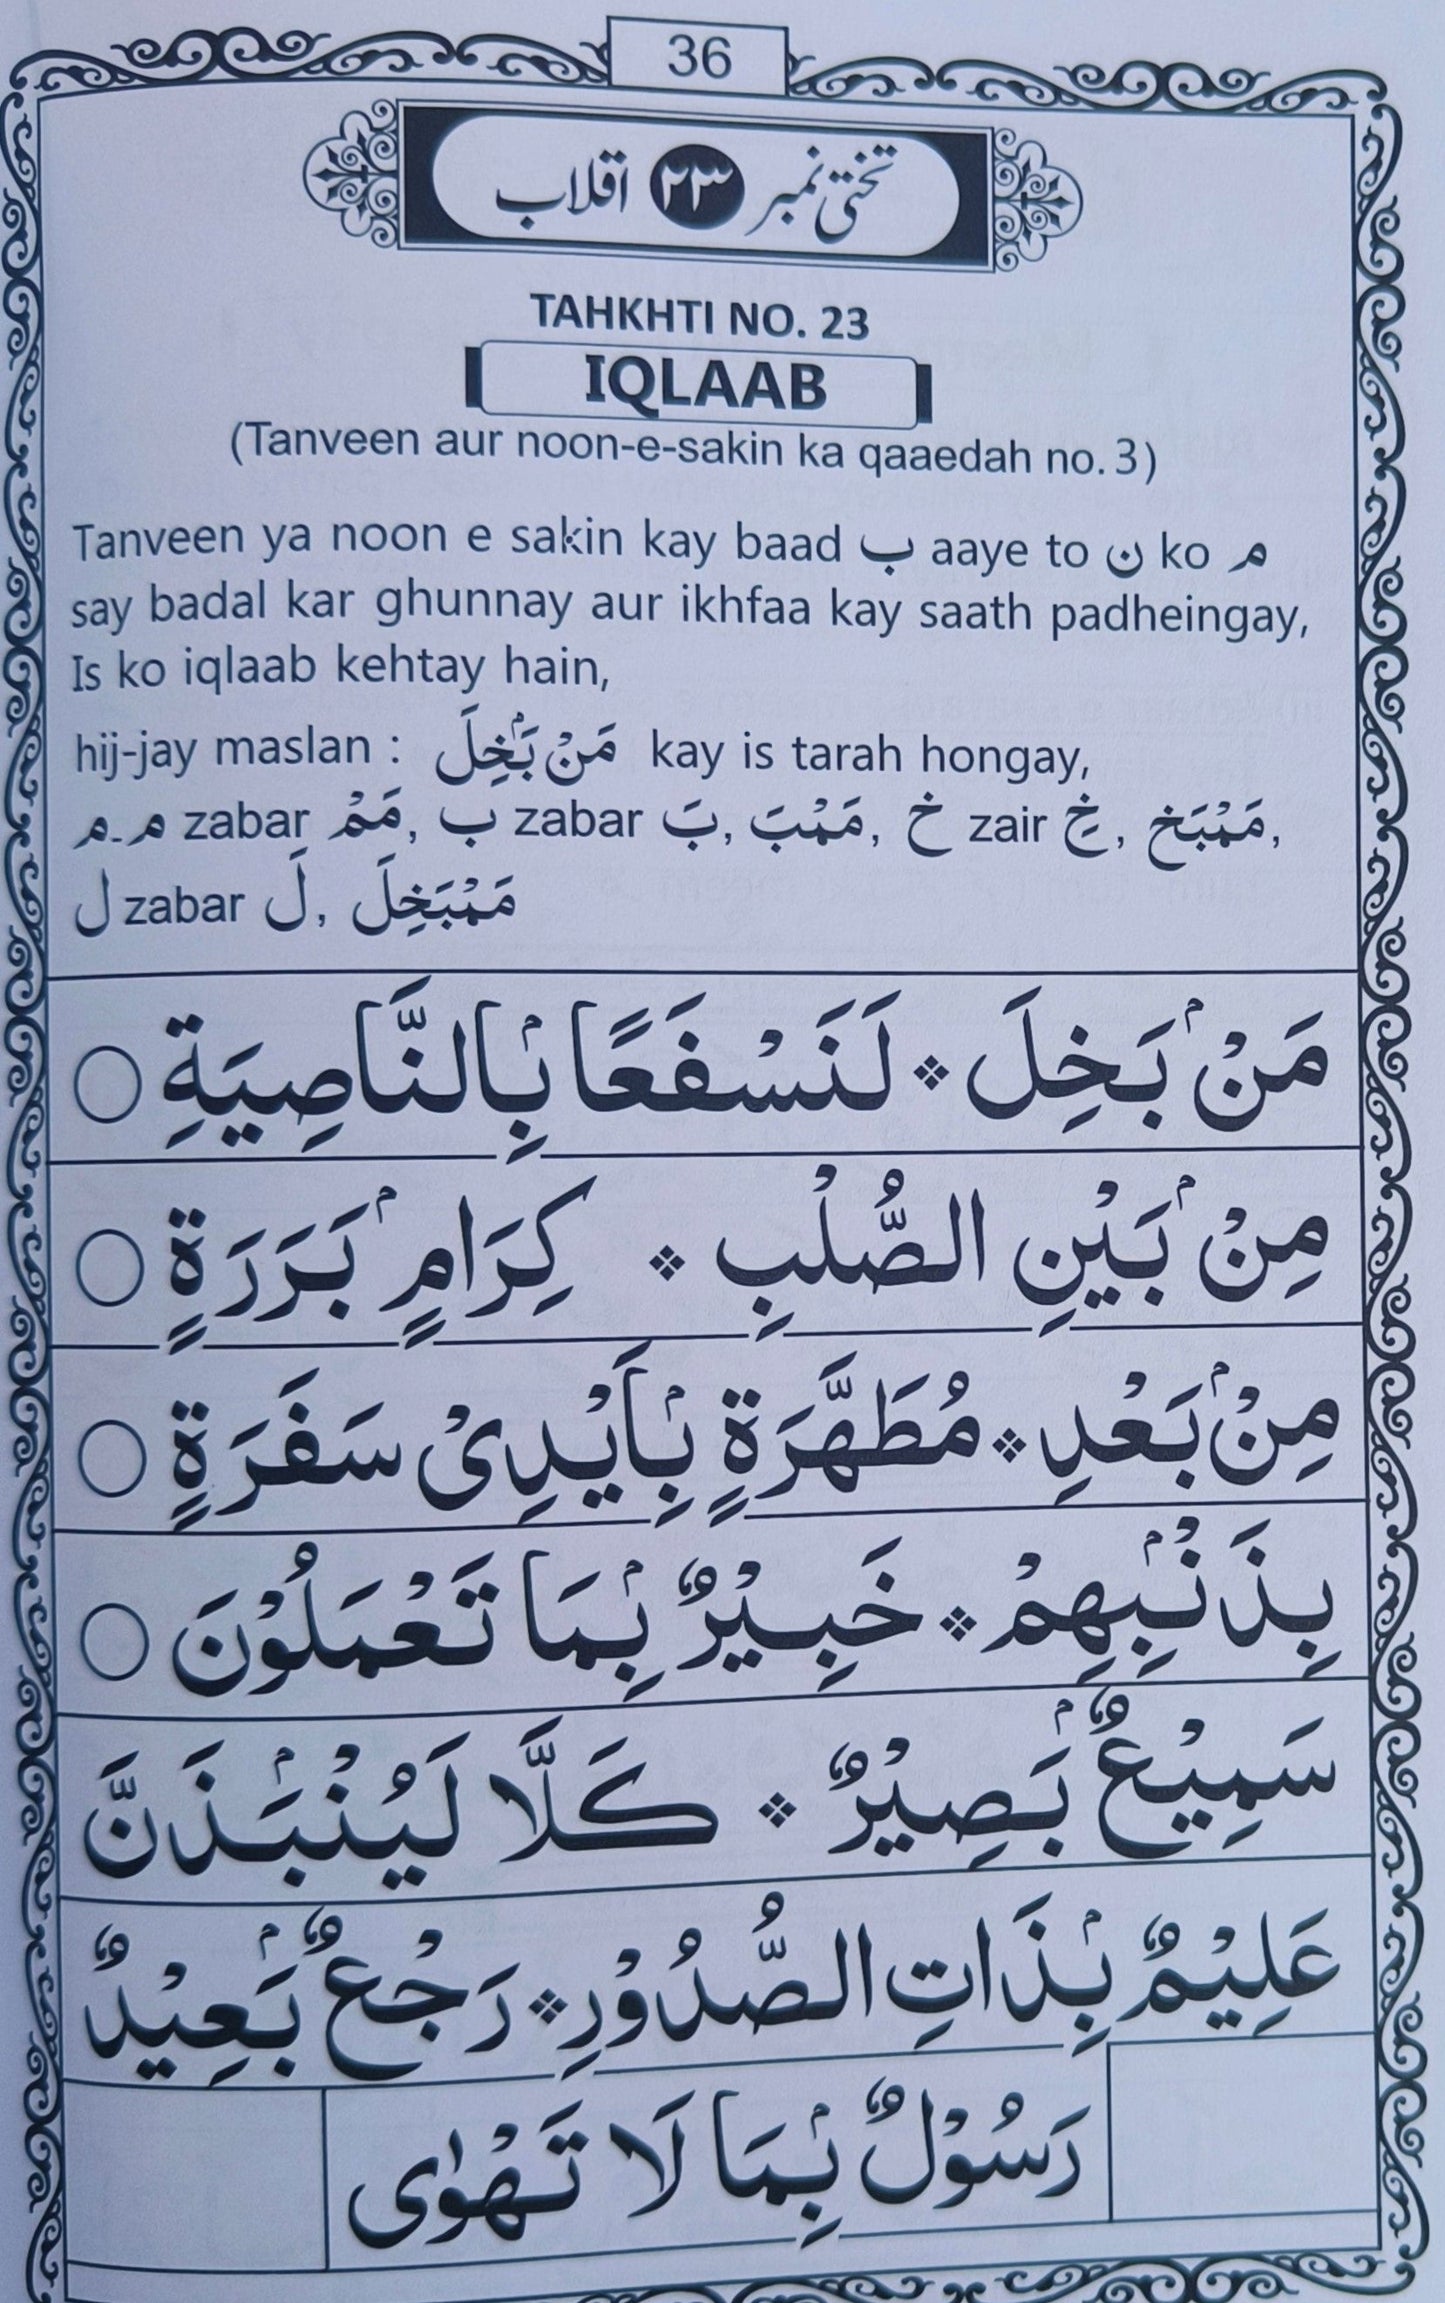 36
تختی نمبر ۲۳ اقلاب
TAHKHTI NO. 23
IQLAAB
(Tanveen aur noon-e-sakin ka qaaedah no. 3)
Tanveen ya noon e sakin kay baad ب aaye to ن ko م
say badal kar ghunnay aur ikhfaa kay saath padheingay,
Is ko iqlaab kehtay hain,
hij-jay maslan : مَنْۢ بَخِلَ kay is tarah hongay,
م۔م zabar مَمْ, ب zabar بَ, مَمْبَ, خ zair خِ, مَمْبَخِ,
ل zabar لَ, مَمْبَخِلَ
مَنْۢ بَخِلَ ۞ لَنَسْفَعًۢا بِالنَّاصِيَةِ ○
مِنْۢ بَيْنِ الصُّلْبِ ۞ كِرَامٍۢ بَرَرَةٍ ○
مِنْۢ بَعْدِ ۞ مُطَهَّرَةٍۢ بِأَيْدِىْ سَفَرَةٍ ○
بِذَنْۢبِهِمْ ۞ خَبِيْرٌۢ بِمَا تَعْمَلُوْنَ ○
سَمِيْعٌۢ بَصِيْرٌ ۞ كَلَّا لَيُنْۢبَذَنَّ
عَلِيْمٌۢ بِذَاتِ الصُّدُوْرِ ۞ رَجْعٌۢ بَعِيْدٌ
رَسُوْلٌۢ بِمَا لَا تَهْوٰى